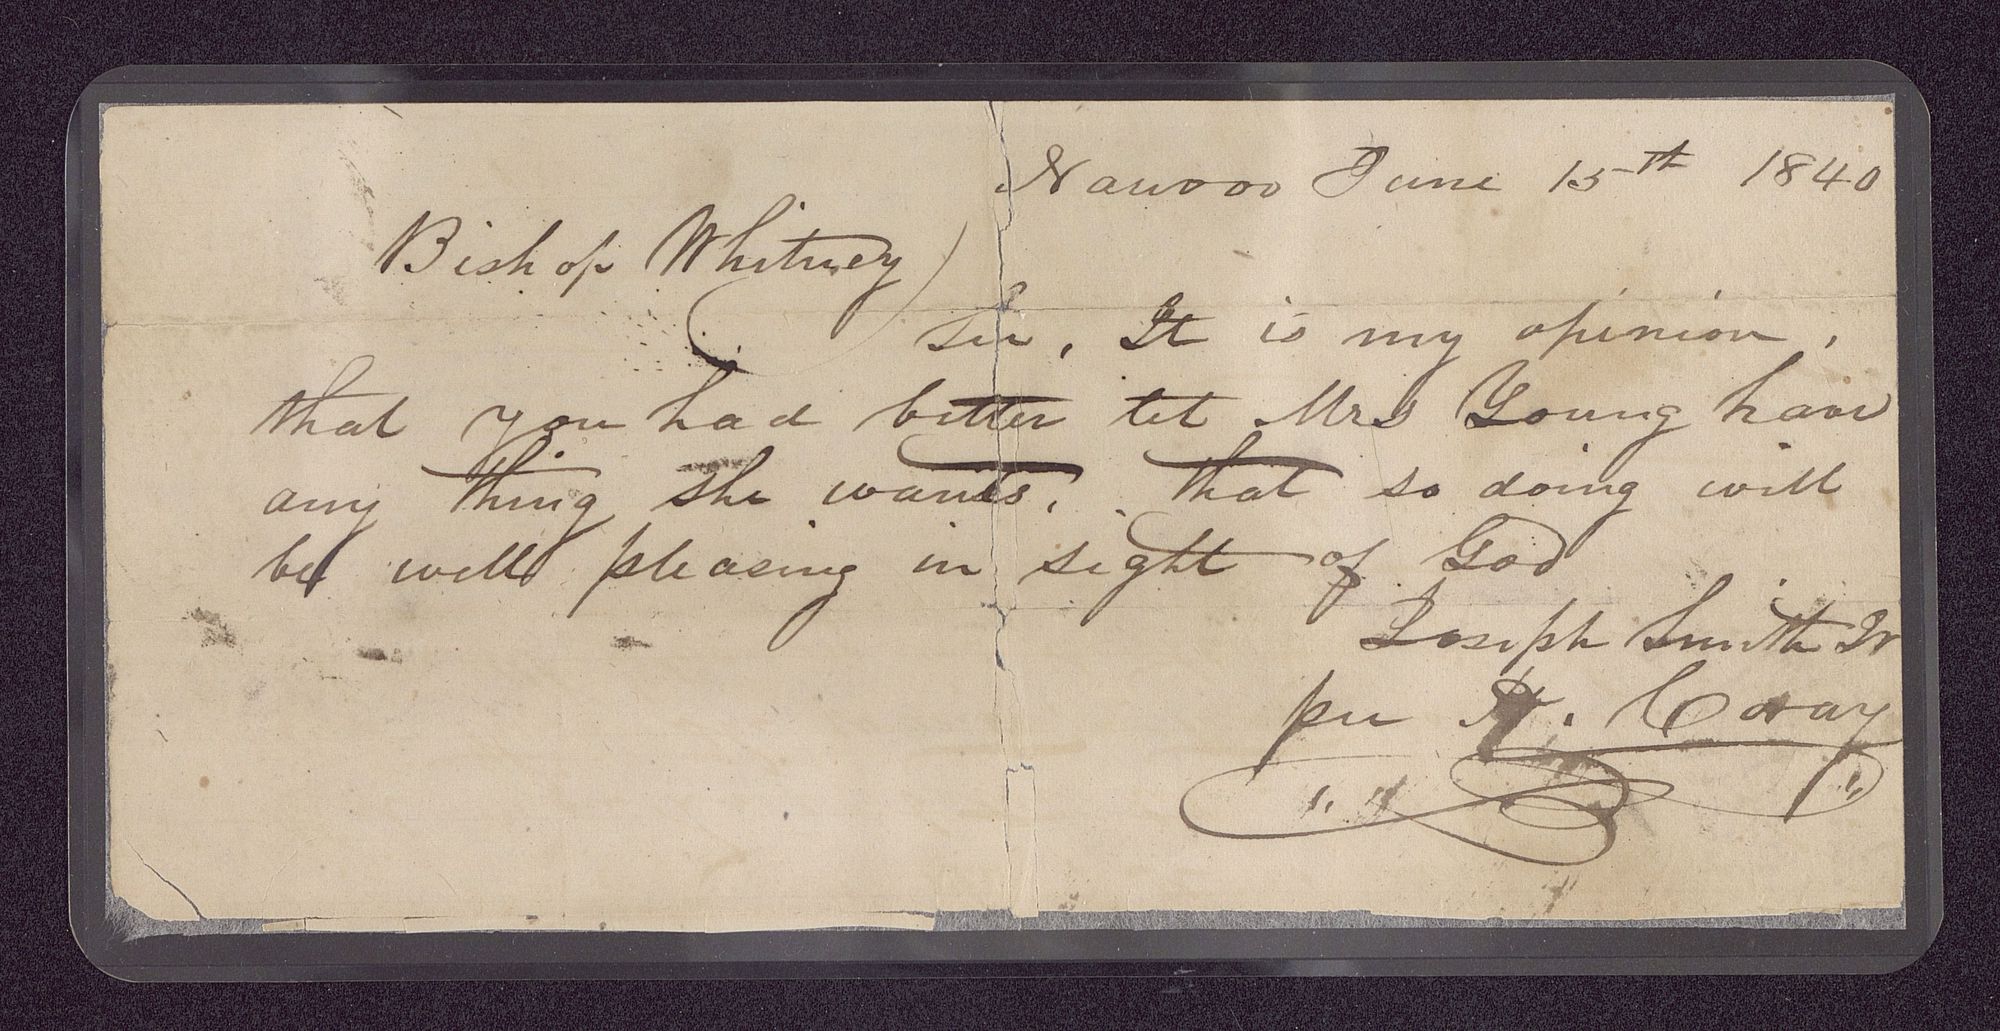 Nauvoo June 15th 1840
Bishop Whitney)
Sir, It is my opinion,
that you had better let Mrs Young have
any thing she wants, that so doing will
be well pleasing in sight of God
Joseph Smith Jr
per H. Coray